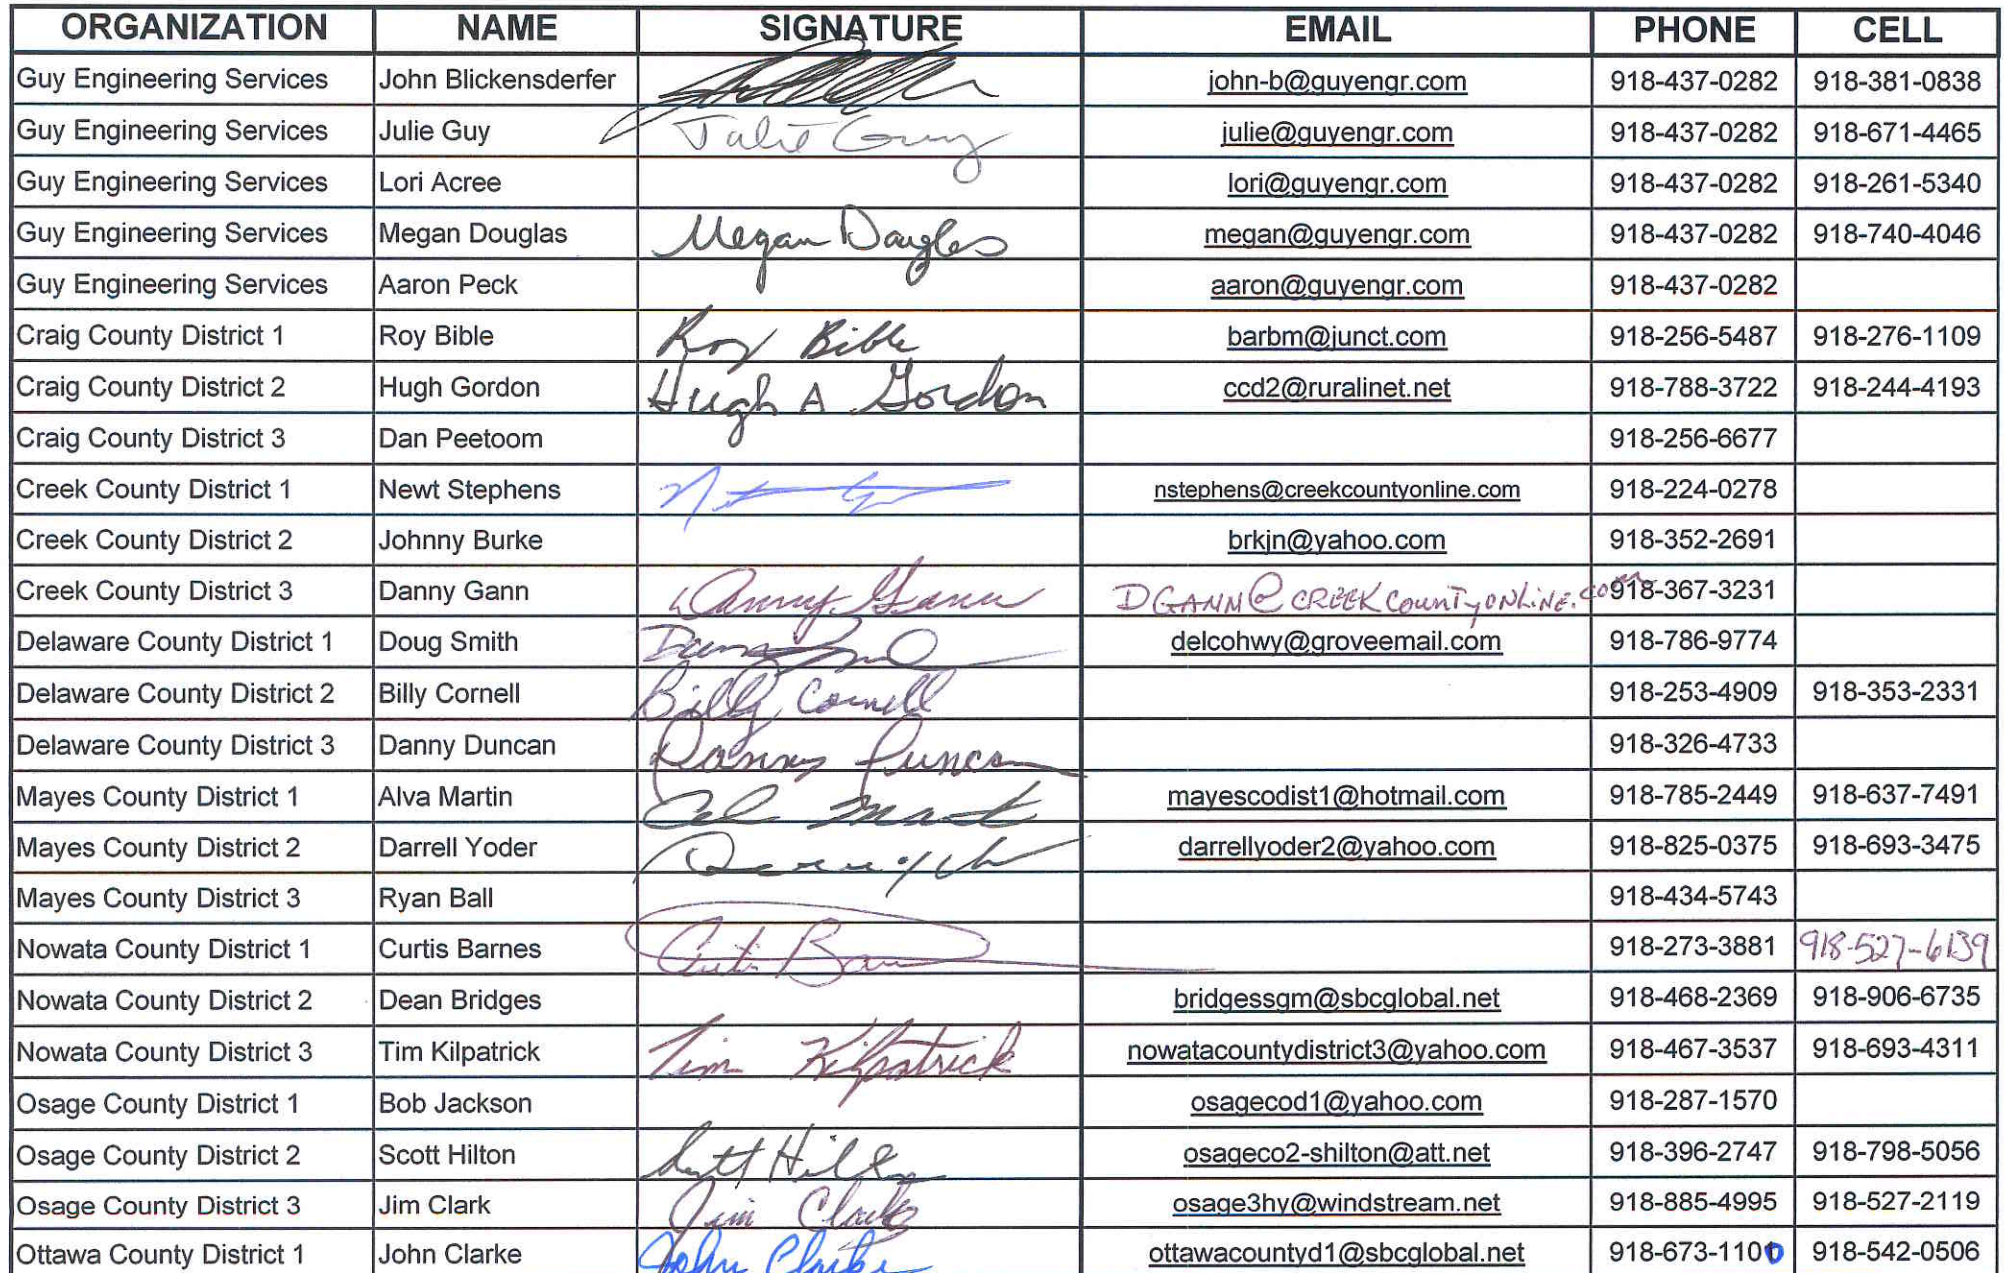 ORGANIZATION NAME SIGNATURE EMAIL PHONE CELL
Guy Engineering Services John Blickensderfer john-b@guyengr.com 918-437-0282 918-381-0838
Guy Engineering Services Julie Guy Julie Guy julie@guyengr.com 918-437-0282 918-671-4465
Guy Engineering Services Lori Acree lori@guyengr.com 918-437-0282 918-261-5340
Guy Engineering Services Megan Douglas Megan Douglas megan@guyengr.com 918-437-0282 918-740-4046
Guy Engineering Services Aaron Peck aaron@guyengr.com 918-437-0282
Craig County District 1 Roy Bible Roy Bible barbm@junct.com 918-256-5487 918-276-1109
Craig County District 2 Hugh Gordon Hugh A Gordon ccd2@ruralinet.net 918-788-3722 918-244-4193
Craig County District 3 Dan Peetoom 918-256-6677
Creek County District 1 Newt Stephens nstephens@creekcountyonline.com 918-224-0278
Creek County District 2 Johnny Burke brkjn@yahoo.com 918-352-2691
Creek County District 3 Danny Gann Danny Gann DGANN@CREEKCOUNTYONLINE.COM 918-367-3231
Delaware County District 1 Doug Smith delcohwy@groveemail.com 918-786-9774
Delaware County District 2 Billy Cornell Billy Cornell 918-253-4909 918-353-2331
Delaware County District 3 Danny Duncan Danny Duncan 918-326-4733
Mayes County District 1 Alva Martin mayescodist1@hotmail.com 918-785-2449 918-637-7491
Mayes County District 2 Darrell Yoder darrellyoder2@yahoo.com 918-825-0375 918-693-3475
Mayes County District 3 Ryan Ball 918-434-5743
Nowata County District 1 Curtis Barnes 918-273-3881 918-527-6139
Nowata County District 2 Dean Bridges bridgessgm@sbcglobal.net 918-468-2369 918-906-6735
Nowata County District 3 Tim Kilpatrick Tim Kilpatrick nowatacountydistrict3@yahoo.com 918-467-3537 918-693-4311
Osage County District 1 Bob Jackson osagecod1@yahoo.com 918-287-1570
Osage County District 2 Scott Hilton Scott Hilton osageco2-shilton@att.net 918-396-2747 918-798-5056
Osage County District 3 Jim Clark Jim Clark osage3hy@windstream.net 918-885-4995 918-527-2119
Ottawa County District 1 John Clarke John Clarke ottawacountyd1@sbcglobal.net 918-673-1100 918-542-0506